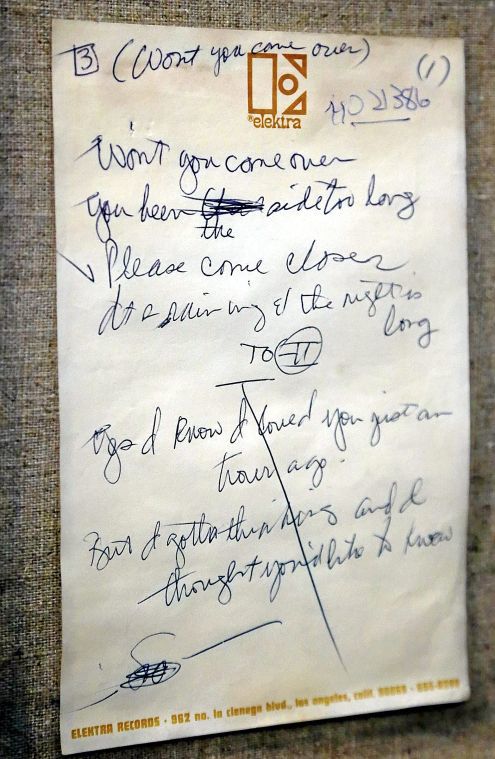 3 (Wont you come over) (1)
elektra
HO 21386
Wont you come over
You been side too long
the
Please come closer
It's raining & the night is
long
TO II
Yes I know I loved you just an
hour ago.
But I gotta thinking and I
thought you'd like to know
ELEKTRA RECORDS · 962 no. la cienega blvd., los angeles, calif. 90069 ·